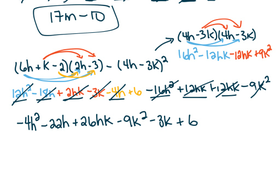 17m - 10
(4h-3k)(4h-3k)
16h² -12hk -12hk +9k²
(6h + k - 2)(2h - 3) - (4h - 3k)²
12h² - 18h + 2hk - 3k - 4h + 6 - 16h² + 12hk + 12hk - 9k²
-4h² - 22h + 26hk - 9k² - 3k + 6